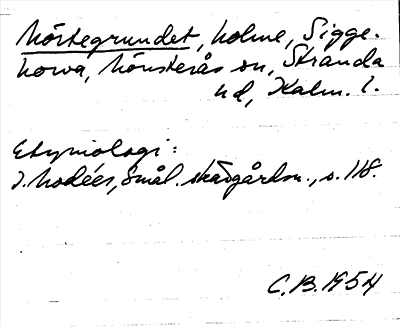 Mörtegrundet, holme, Sigge-
horva, Mönsterås sn, Stranda
hd, Kalm. l.
Etymologi:
I. Modéer, Smål. skärgårdsn., s. 118.
C.B. 1954